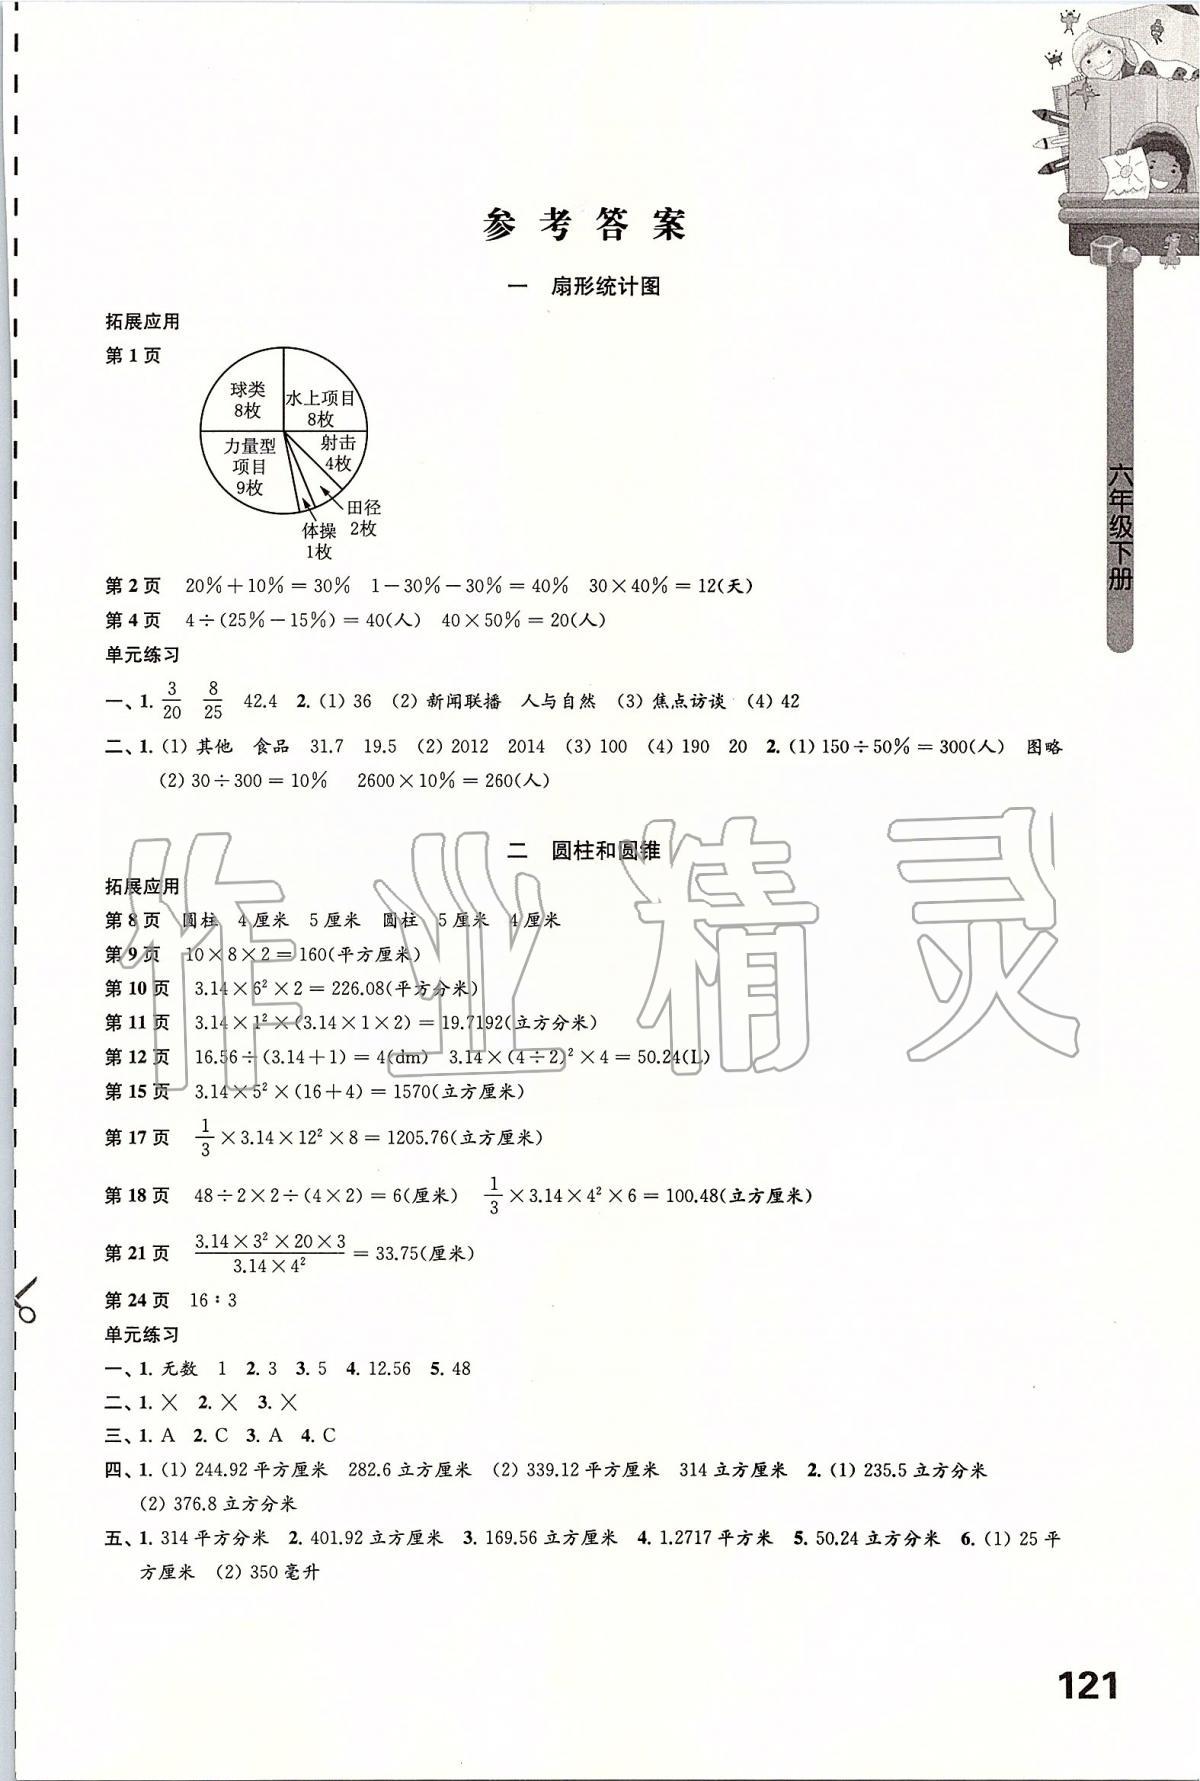 参考答案
一 扇形统计图
拓展应用
第1页
球类
8枚
水上项目
8枚
力量型
项目
9枚
射击
4枚
田径
2枚
体操
1枚
第2页 20%+10%=30% 1-30%-30%=40% 30×40%=12(天)
第4页 4÷(25%-15%)=40(人) 40×50%=20(人)
单元练习
一、1. 3/20 8/25 42.4 2. (1) 36 (2) 新闻联播 人与自然 (3) 焦点访谈 (4) 42
二、1. (1) 其他 食品 31.7 19.5 (2) 2012 2014 (3) 100 (4) 190 20 2. (1) 150÷50%=300(人) 图略
(2) 30÷300=10% 2600×10%=260(人)
二 圆柱和圆锥
拓展应用
第8页 圆柱 4厘米 5厘米 圆柱 5厘米 4厘米
第9页 10×8×2=160(平方厘米)
第10页 3.14×6²×2=226.08(平方分米)
第11页 3.14×1²×(3.14×1×2)=19.7192(立方分米)
第12页 16.56÷(3.14+1)=4(dm) 3.14×(4÷2)²×4=50.24(L)
第15页 3.14×5²×(16+4)=1570(立方厘米)
第17页 1/3×3.14×12²×8=1205.76(立方厘米)
第18页 48÷2×2÷(4×2)=6(厘米) 1/3×3.14×4²×6=100.48(立方厘米)
第21页 3.14×3²×20×3/3.14×4²=33.75(厘米)
第24页 16∶3
单元练习
一、1. 无数 1 2. 3 3. 5 4. 12.56 5. 48
二、1. × 2. × 3. ×
三、1. A 2. C 3. A 4. C
四、1. (1) 244.92平方厘米 282.6立方厘米 (2) 339.12平方厘米 314立方厘米 2. (1) 235.5立方分米
(2) 376.8立方分米
五、1. 314平方分米 2. 401.92立方厘米 3. 169.56立方厘米 4. 1.2717平方米 5. 50.24立方分米 6. (1) 25平
方厘米 (2) 350毫升
六年级下册
121
作业精灵